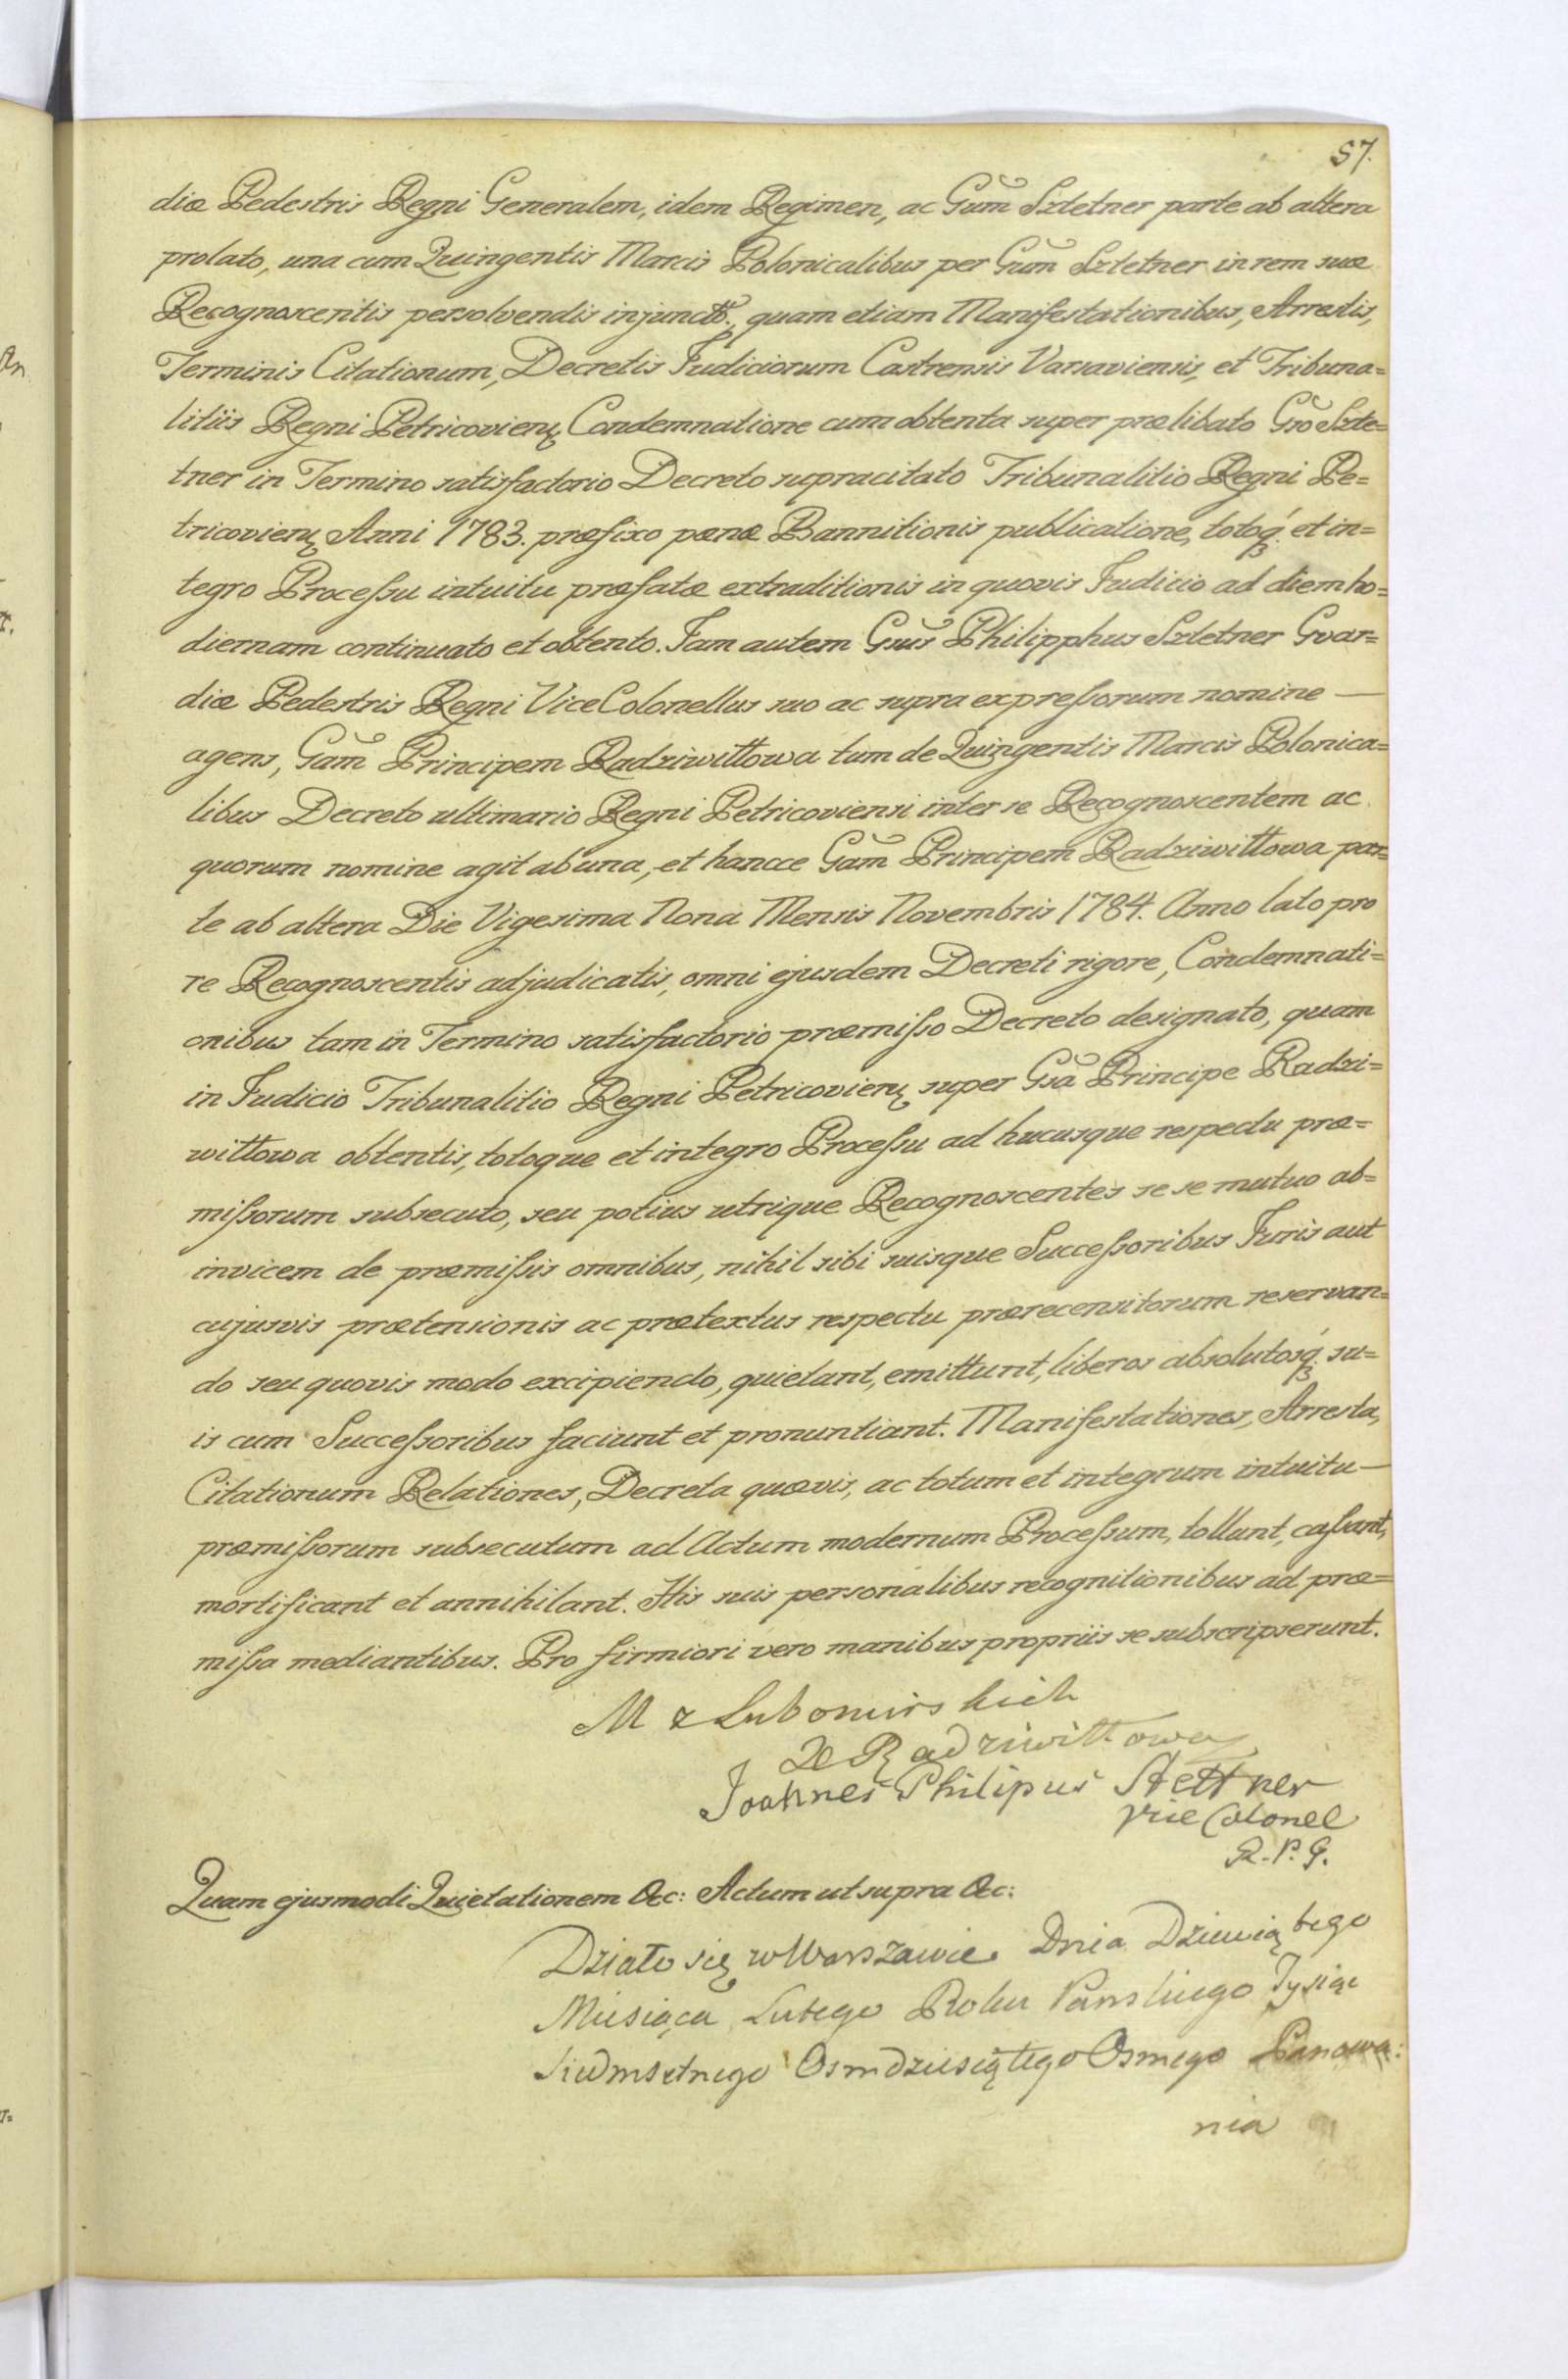 57.
diæ Pedestris Regni Generalem, idem Regimen, ac Gum̃ Sztetner parte ab altera
prolato, una cum Quingentis Marcis Polonicalibus per Gum̃ Sztetner in rem suæ
Recognoscentis persolvendis injunctõ., quam etiam Manifestationibus, Arrestis,
Terminis Citationum, Decretis Judiciorum Castrensis Varsaviensis, et Tribuna=
litiis Regni Petricovien̄ Condemnatione cum obtenta super prælibato Gsõ Szte=
tner in Termino satisfactorio Decreto supracitato Tribunalitio Regni Pe=
tricovien̄ Anni 1783. præfixo pœnæ Bannitionis publicatione, totoq́ꝫ et in=
tegro Processu intuitu præfatæ extraditionis in quovis Judicio ad diem ho=
diernam continuato et obtento. Jam autem Gsus̃ Philipphus Sztetner Gvar=
diæ Pedestris Regni ViceColonellus suo ac supra expressorum nomine —
agens, Gam̃ Principem Radziwiłłowa tum de Quingentis Marcis Polonica=
libus Decreto ultimario Regni Petricoviensi inter se Recognoscentem ac
quorum nomine agit ab una, et hancce Gam̃ Principem Radziwiłłowa par=
te ab altera Die Vigesima Nona Mensis Novembris 1784. Anno lato pro
re Recognoscentis adjudicatis, omni ejusdem Decreti rigore, Condemnati=
onibus tam in Termino satisfactorio præmisso Decreto designato, quam
in Judicio Tribunalitio Regni Petricovien̄ super Gsã Principe Radzi=
wiłłowa obtentis, totoque et integro Processu ad hucusque respectu præ=
missorum subsecuto, seu potius utrique Recognoscentes se se mutuo ab=
invicem de præmissis omnibus, nihil sibi suisque Successoribus Juris aut
cujusvis prætensionis ac prætextus respectu prærecensitorum reservan=
do seu quovis modo excipiendo, quietant, emittunt, liberos absolutosq́ꝫ su=
is cum Successoribus faciunt et pronuntiant. Manifestationes, Arresta,
Citationum Relationes, Decreta quævis, ac totum et integrum intuitu —
præmissorum subsecutum ad Actum modernum Processum, tollunt, cassant,
mortificant et annihilant. His suis personalibus recognitionibus ad præ=
missa mediantibus. Pro firmiori vero manibus propriis se subscripserunt.
M z Lubomirskich
Radziwiłłowa
Joahnes Philipus Stettner
Vice Colonel
R. P. G.
Quam ejusmodi Quietationem &c: Actum ut supra &c:
Działo się w Warszawie Dnia Dziewiątego
Miesiąca Lutego Roku Panskiego Tysiąc
Siedmsetnego Osmdziesiątego Osmego Panowa:
nia